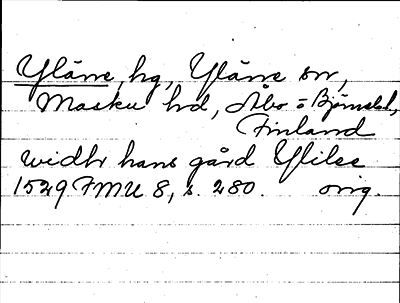 Yläne, hg, Yläne sn,
Masku hd, Åbo o Björneb.l,
Finland
widhr hans gård Ylilse
1529 FMU 8, s. 280. orig.